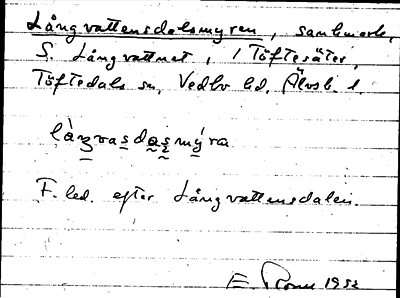 Långvattensdalsmyren, sankmark,
S. Långvattnet, i Töftesäter,
Töftedals sn, Vedbo hd. Älvsb. l.
làŋvasdasmýra
F. led. efter Långvattensdalen.
E. 1952